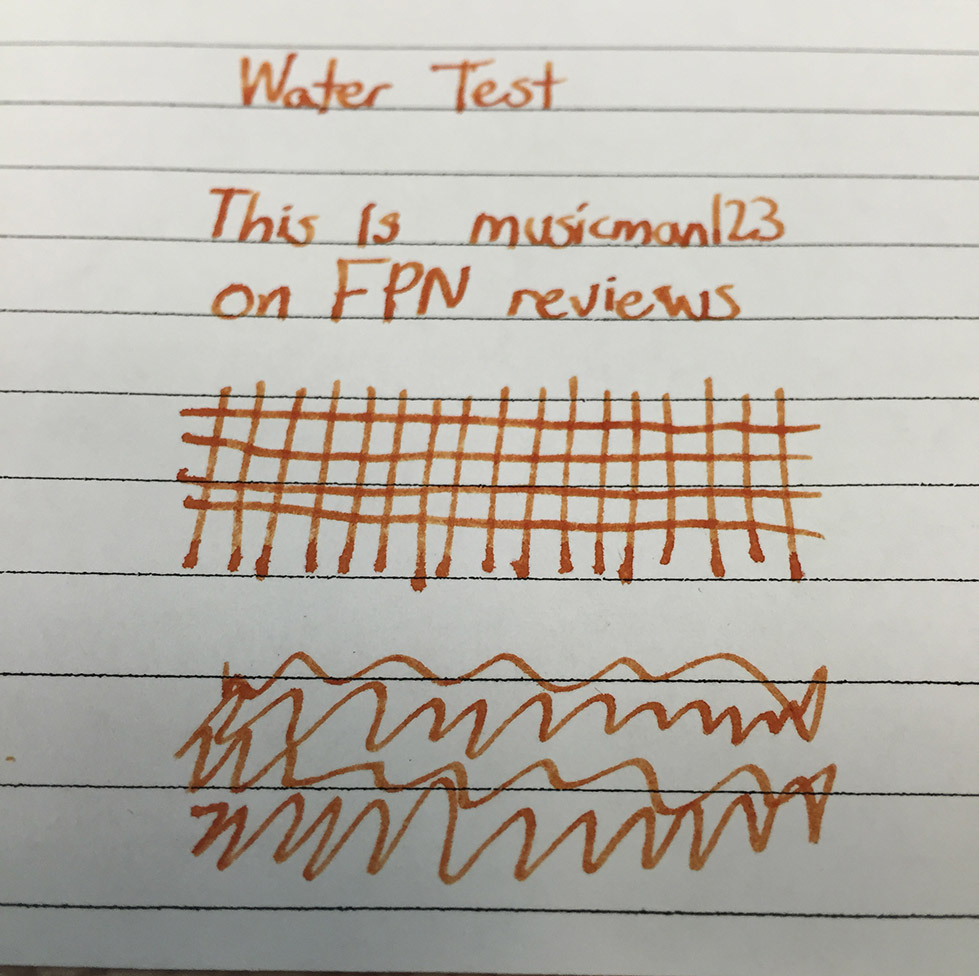 Water Test
This is musicman123
on FPN reviews